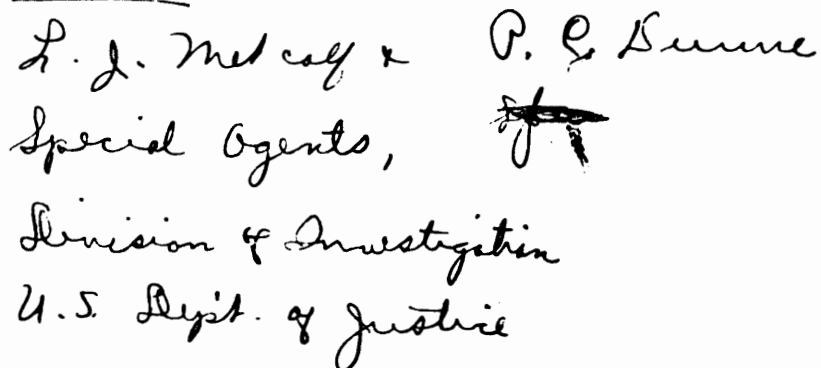 L. J. Metcalf & P. E. Dunne
Special Agents,
Division of Investigation
U.S. Dep't. of Justice